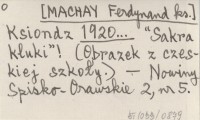 [MACHAY Ferdynand ks.]
Ksiondz 1920... "Sakra
kluki"! (Obrazek z czes-
kiej szkoły.) — Nowiny
Spisko-Orawskie 2, nr 5.